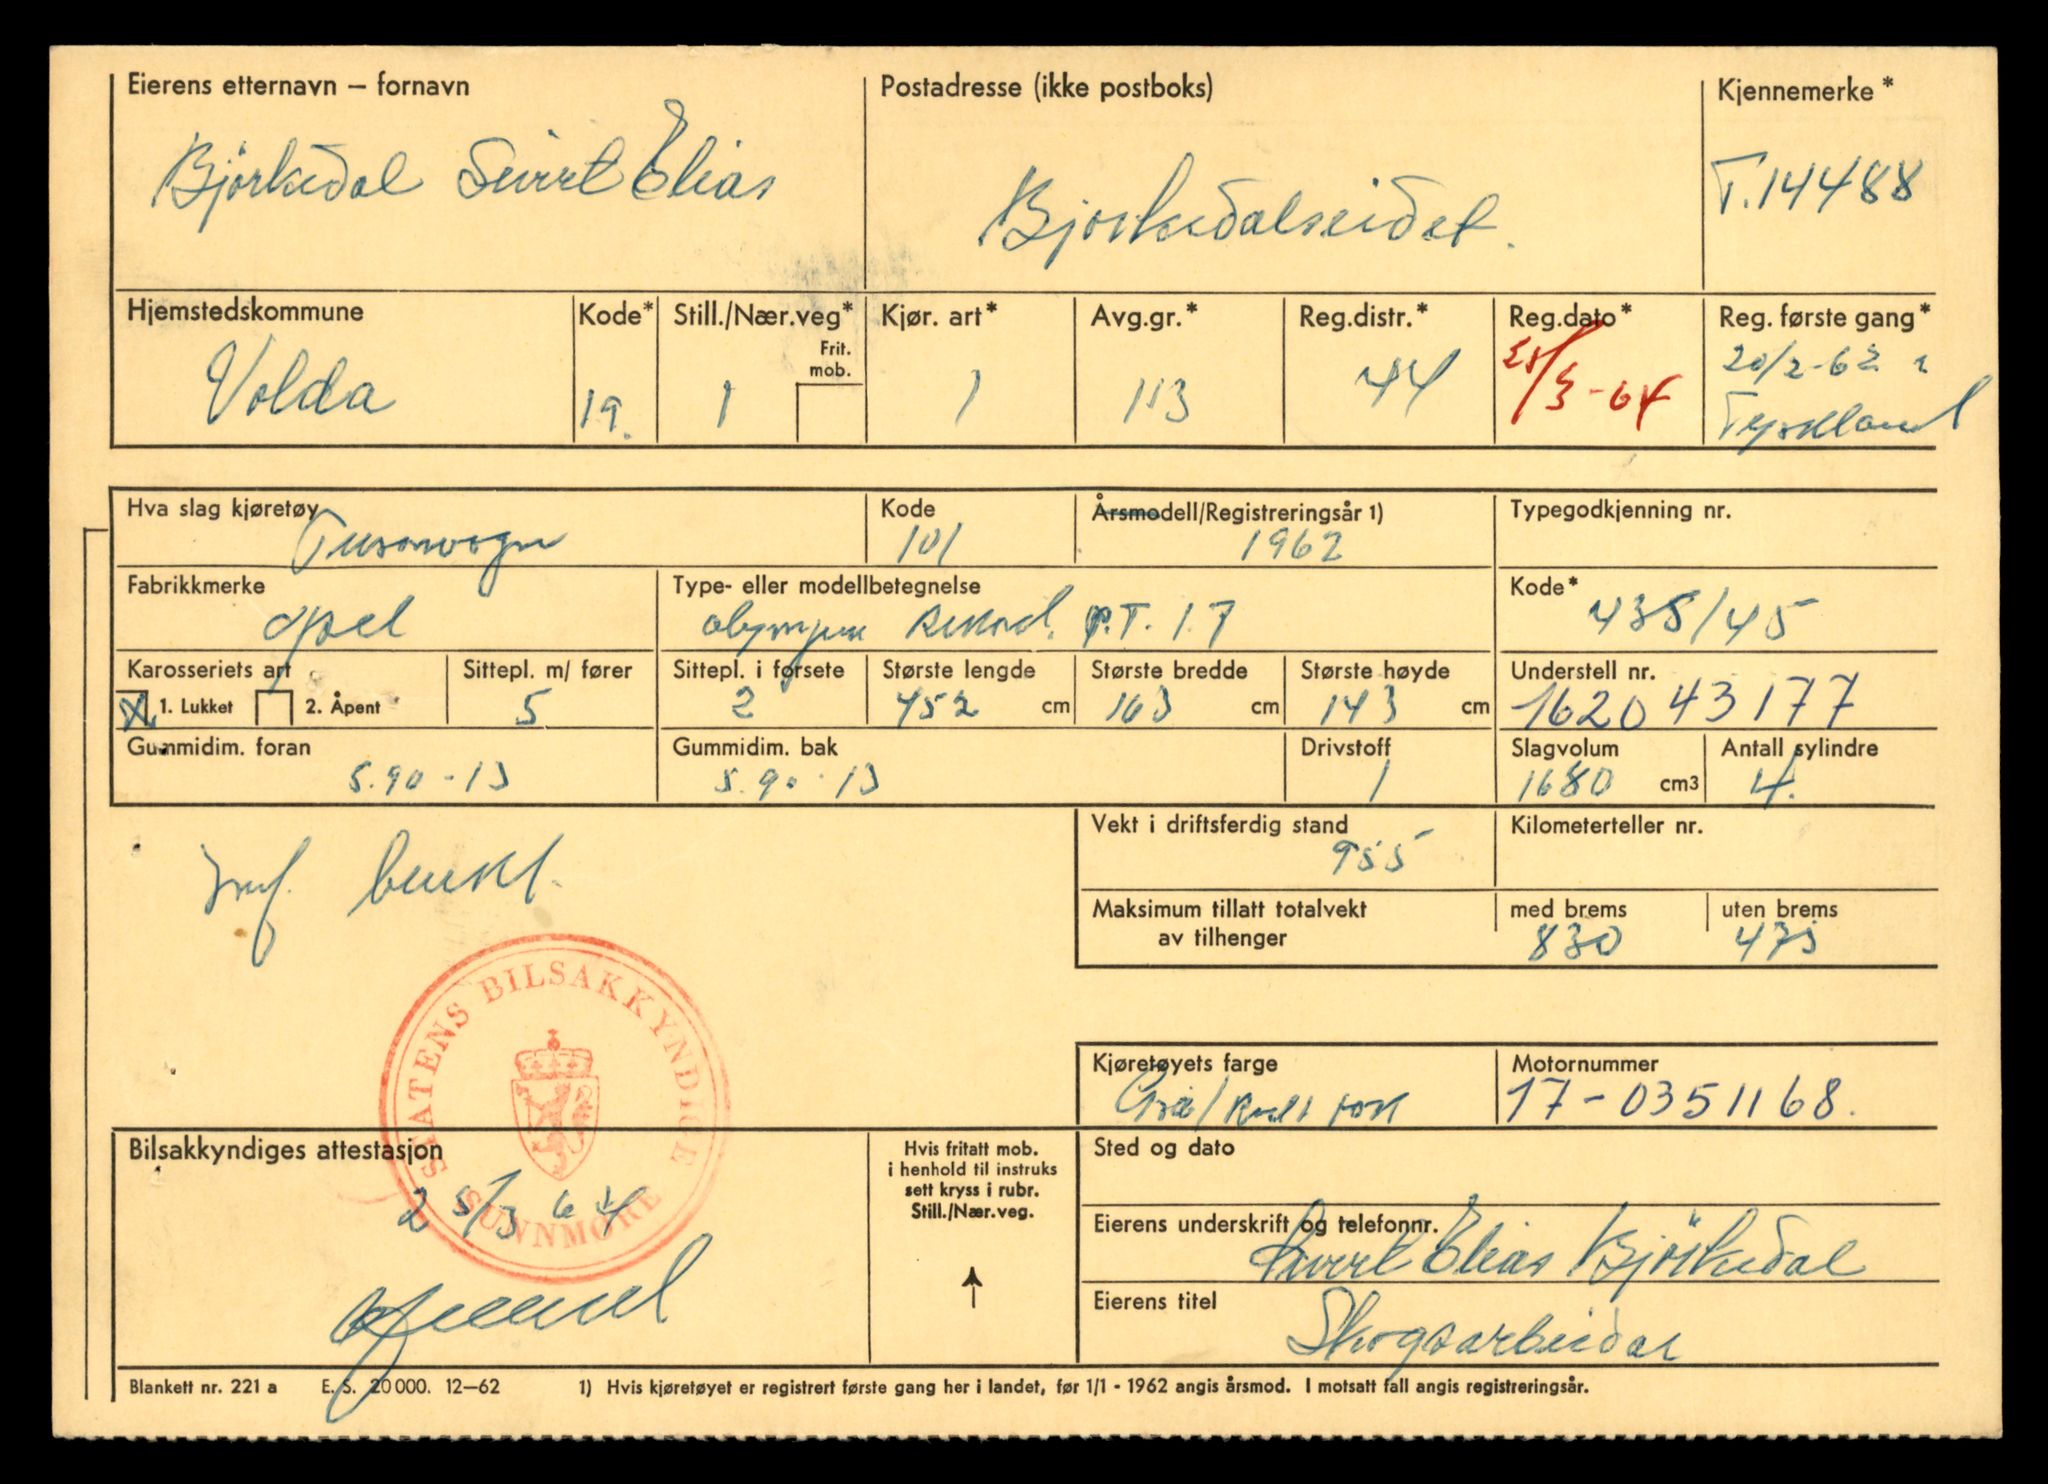 Eierens etternavn – fornavn
Björkedal Sivert Elias
Postadresse (ikke postboks)
Bjorkedalseidet.
Kjennemerke*
T.14488
Hjemstedskommune
Volda
Kode*
19.
Still./Nær.veg*
1
Frit.
mob.
Kjør. art*
1
Avg.gr.*
113
Reg.distr.*
44
Reg.dato*
25/3-64
Reg. første gang*
20/2-62 i
Tyskland
Hva slag kjøretøy
Personvogn
Kode
101
Årsmodell/Registreringsår 1)
1962
Typegodkjenning nr.
Fabrikkmerke
Opel
Type- eller modellbetegnelse
Rekord. P.T. 1.7
Kode*
438/45
Karosseriets art
X 1. Lukket 2. Åpent
Sittepl. m/ fører
5
Sittepl. i forsete
2
Største lengde
452 cm
Største bredde
163 cm
Største høyde
143 cm
Understell nr.
162043177
Gummidim. foran
5.90-13
Gummidim. bak
5.90-13
Drivstoff
1
Slagvolum
1680 cm3
Antall sylindre
4.
Vekt i driftsferdig stand
955
Kilometerteller nr.
Maksimum tillatt totalvekt
av tilhenger
med brems
830
uten brems
475
STATENS BILSAKKYNDIGE
SUNNMØRE
Kjøretøyets farge
Grå/
Motornummer
17-0351168.
Bilsakkyndiges attestasjon
25/3 64
Hvis fritatt mob.
i henhold til instruks
sett kryss i rubr.
Still./Nær.veg.
Sted og dato
Eierens underskrift og telefonnr.
Sivert Elias Björkedal
Eierens titel
Skogsarbeidar
Blankett nr. 221 a E. S. 20 000. 12–62 1) Hvis kjøretøyet er registrert første gang her i landet, før 1/1 - 1962 angis årsmod. I motsatt fall angis registreringsår.